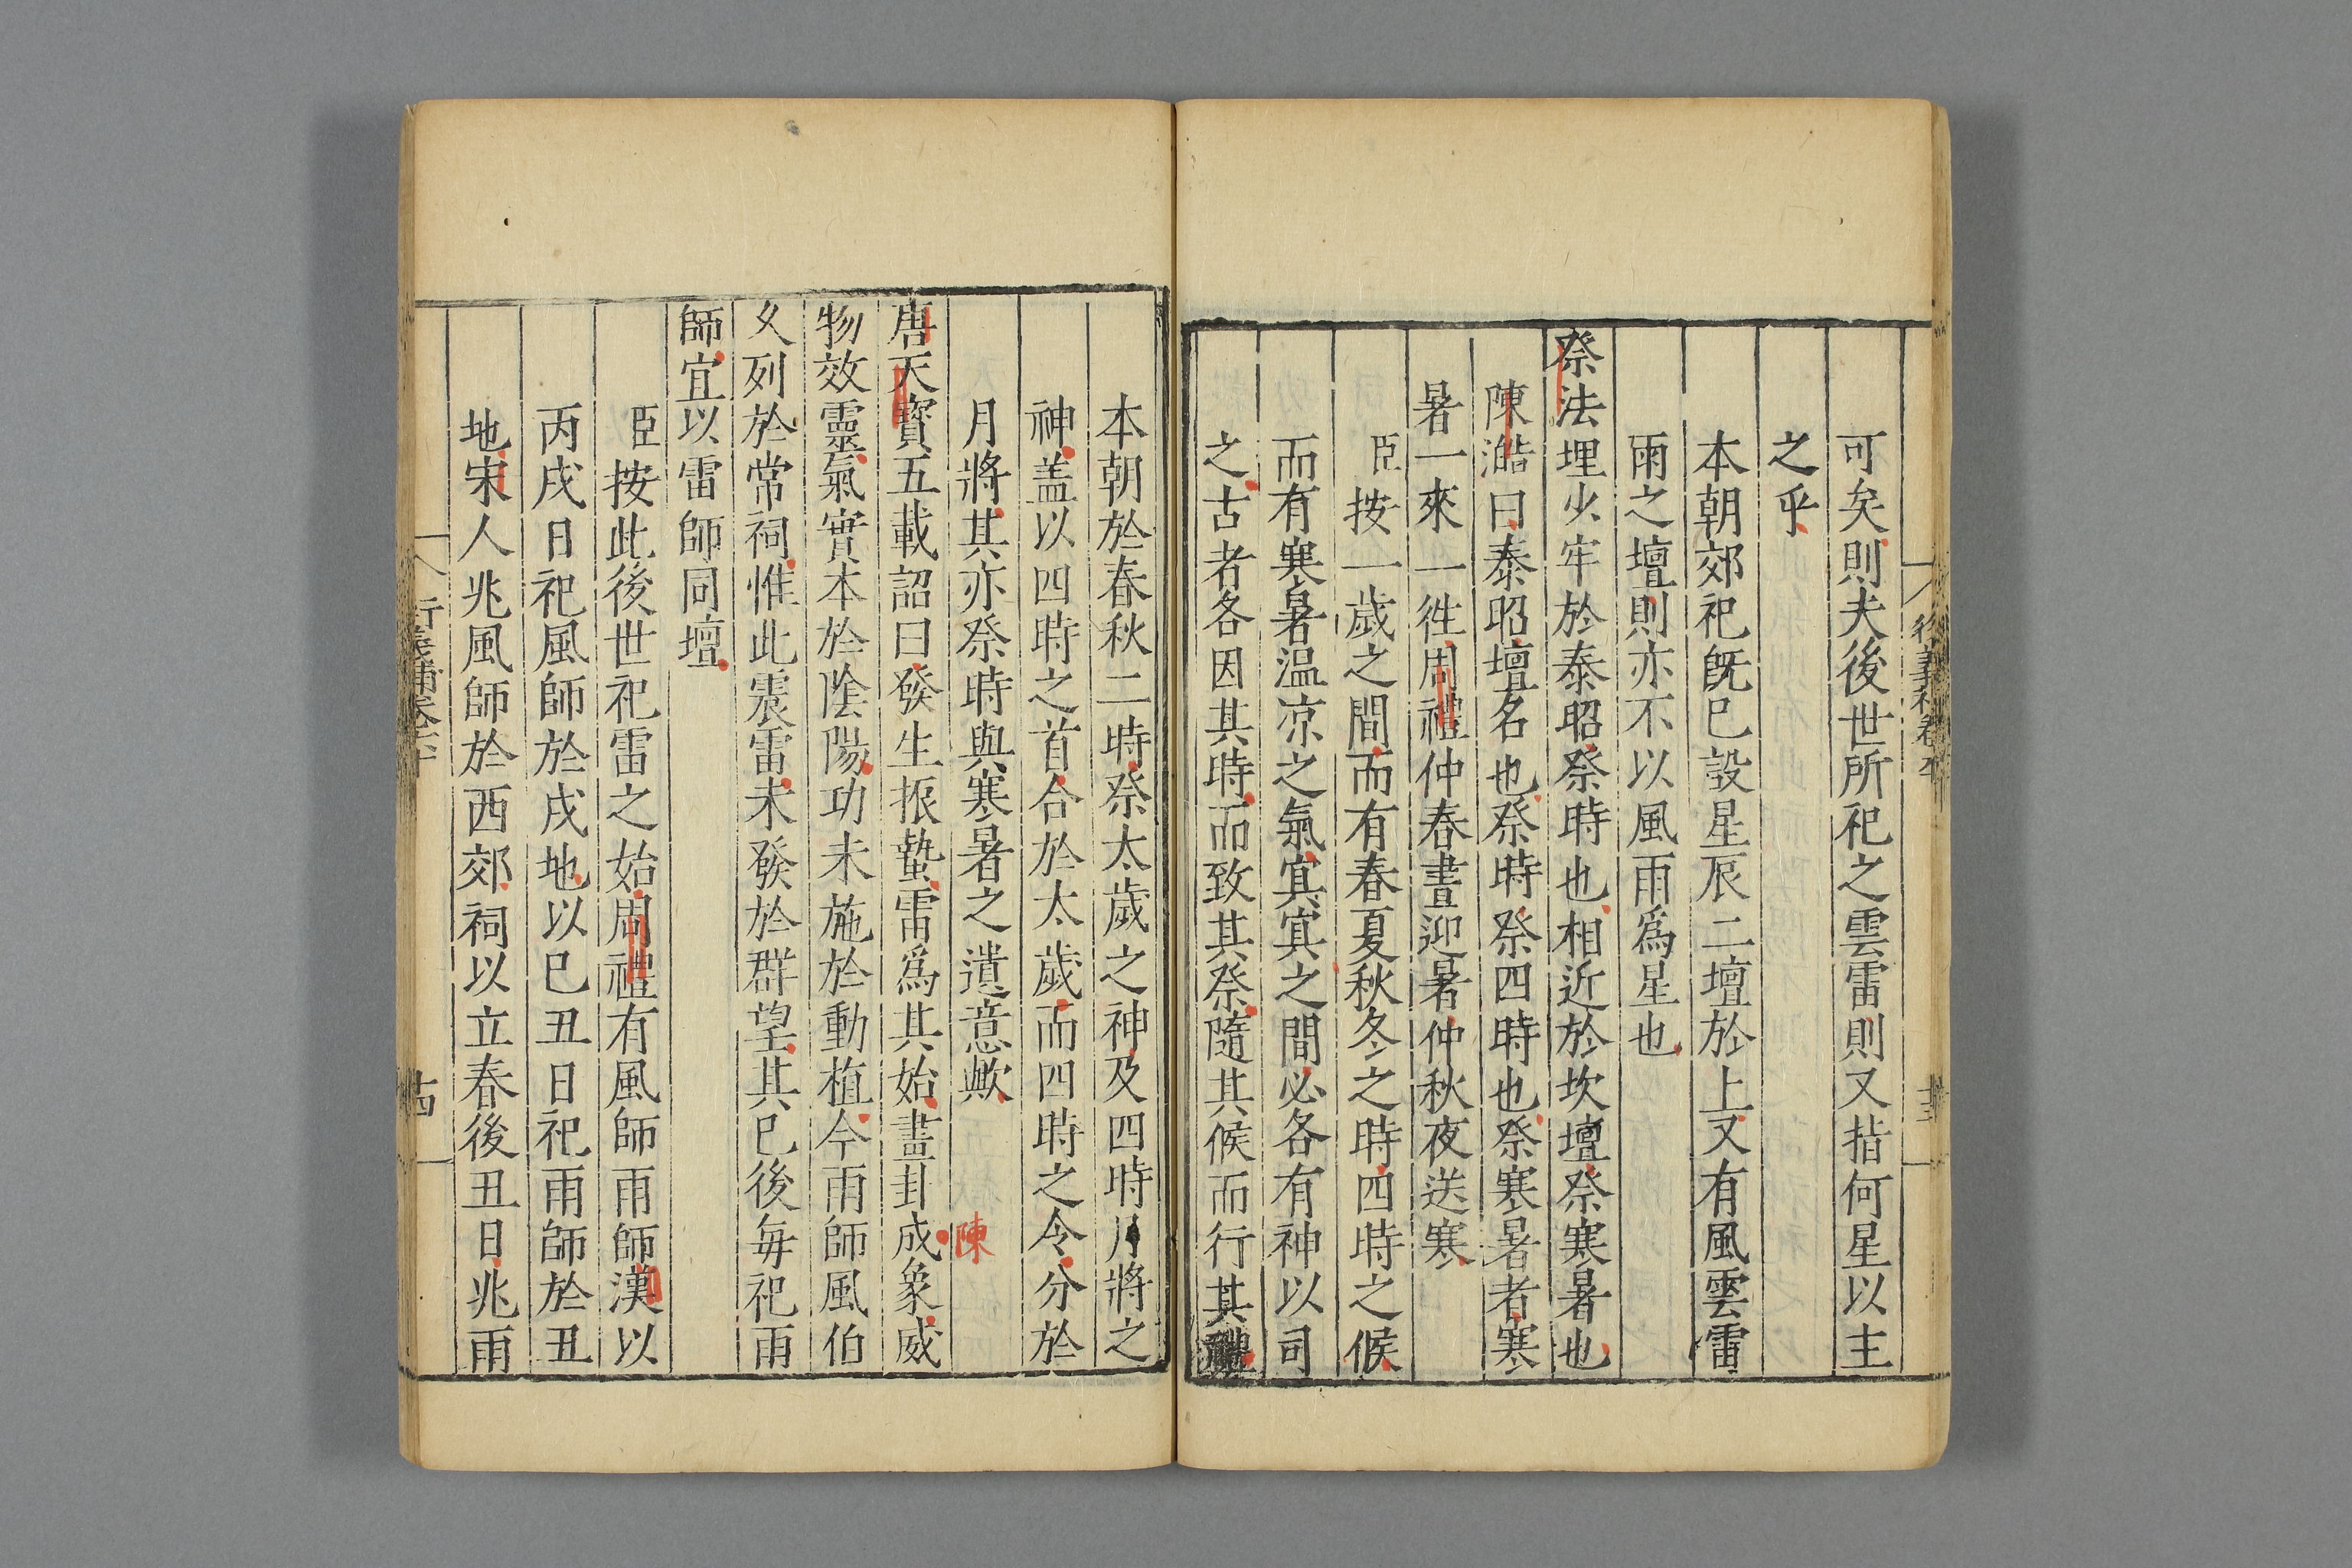 可矣則夫後世所祀之雲雷則又指何星以主
之乎
本朝郊祀旣已設星辰二壇於上又有風雲雷
雨之壇則亦不以風雨爲星也
祭法埋少牢於泰昭祭時也相近於坎壇祭寒暑也
陳澔曰泰昭壇名也祭時祭四時也祭寒暑者寒
暑一來一徃周禮仲春晝迎暑仲秋夜送寒
臣按一歲之間而有春夏秋冬之時四時之候
而有寒暑温凉之氣寘寘之間必各有神以司
之古者各因其時而致其祭隨其候而行其禮
本朝於春秋二時祭太歲之神及四時月將之
神盖以四時之首合於太歲而四時之令分於
月將其亦祭時與寒暑之遺意歟
陳
唐天寳五載詔曰發生振蟄雷爲其始畫卦成象威
物效靈氣實本於陰陽功未施於動植今雨師風伯
久列於常祠惟此震雷未發於群望其已後每祀雨
師宜以雷師同壇
臣按此後世祀雷之始周禮有風師雨師漢以
丙戌日祀風師於戌地以巳丑日祀雨師於丑
地宋人兆風師於西郊祠以立春後丑日兆雨
衍義補卷六十
十四